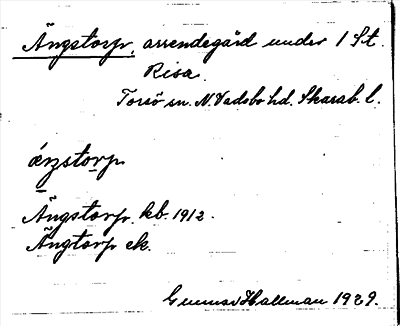 Ängstorp, arrendegård under 1 St.
Risa.
Torsö sn. N. Vadsbo hd. Skarab. l.
áŋstorp
Ängstorp kb. 1912.
Ängtorp ek.
Gunnar Hallman 1929.